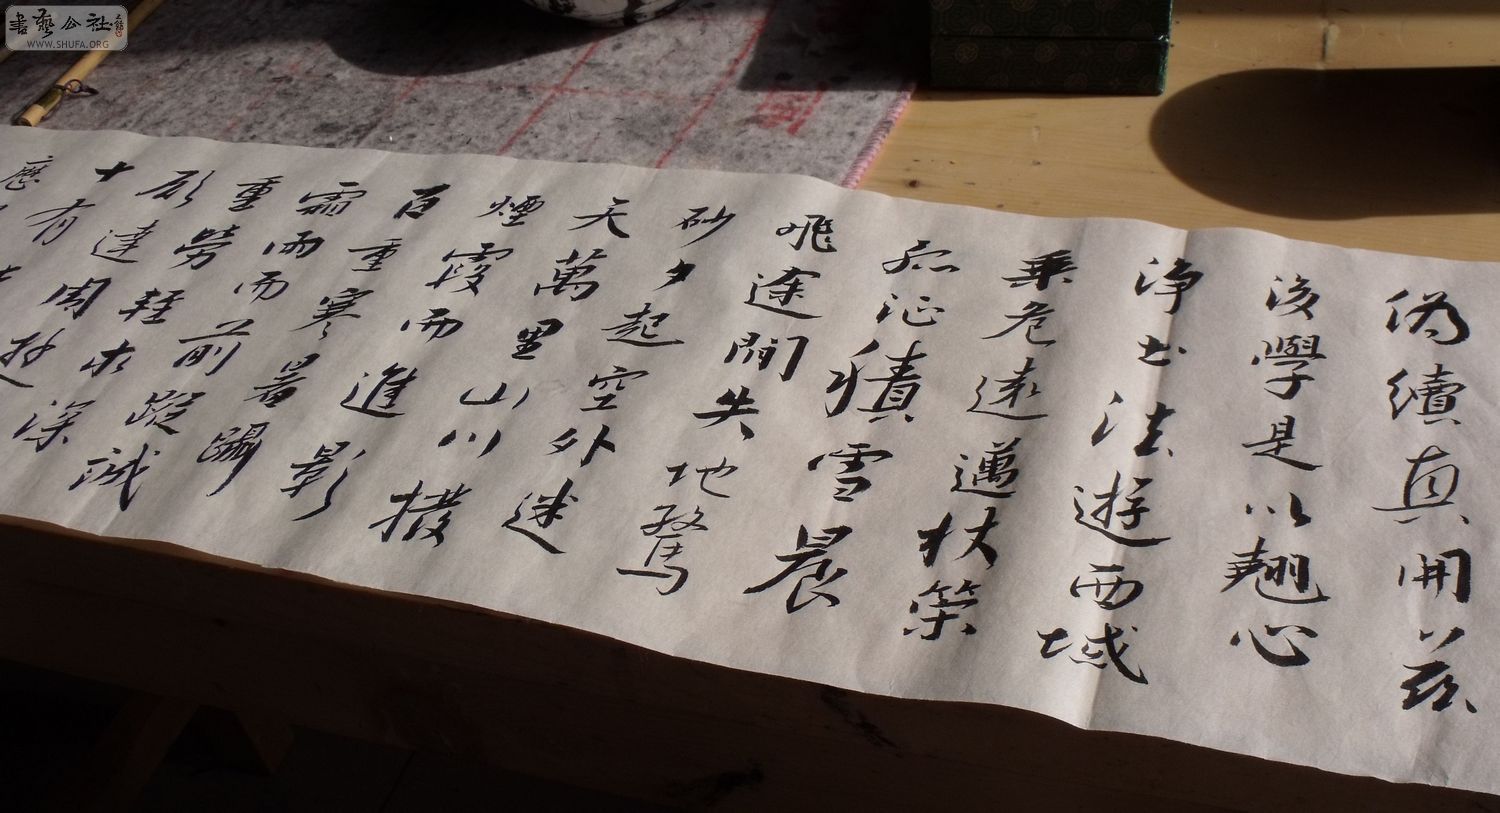 書藝公社
WWW.SHUFA.ORG
偽續真開茲
後學是以翹心
淨土往遊西域
乘危遠邁杖策
孤征積雪晨
飛途閒失地驚
砂夕起空外迷
天萬里山川撥
煙霞而進影
百重寒暑躡
霜雨而前蹤誠
重勞輕求深
願達周遊
十有
歷